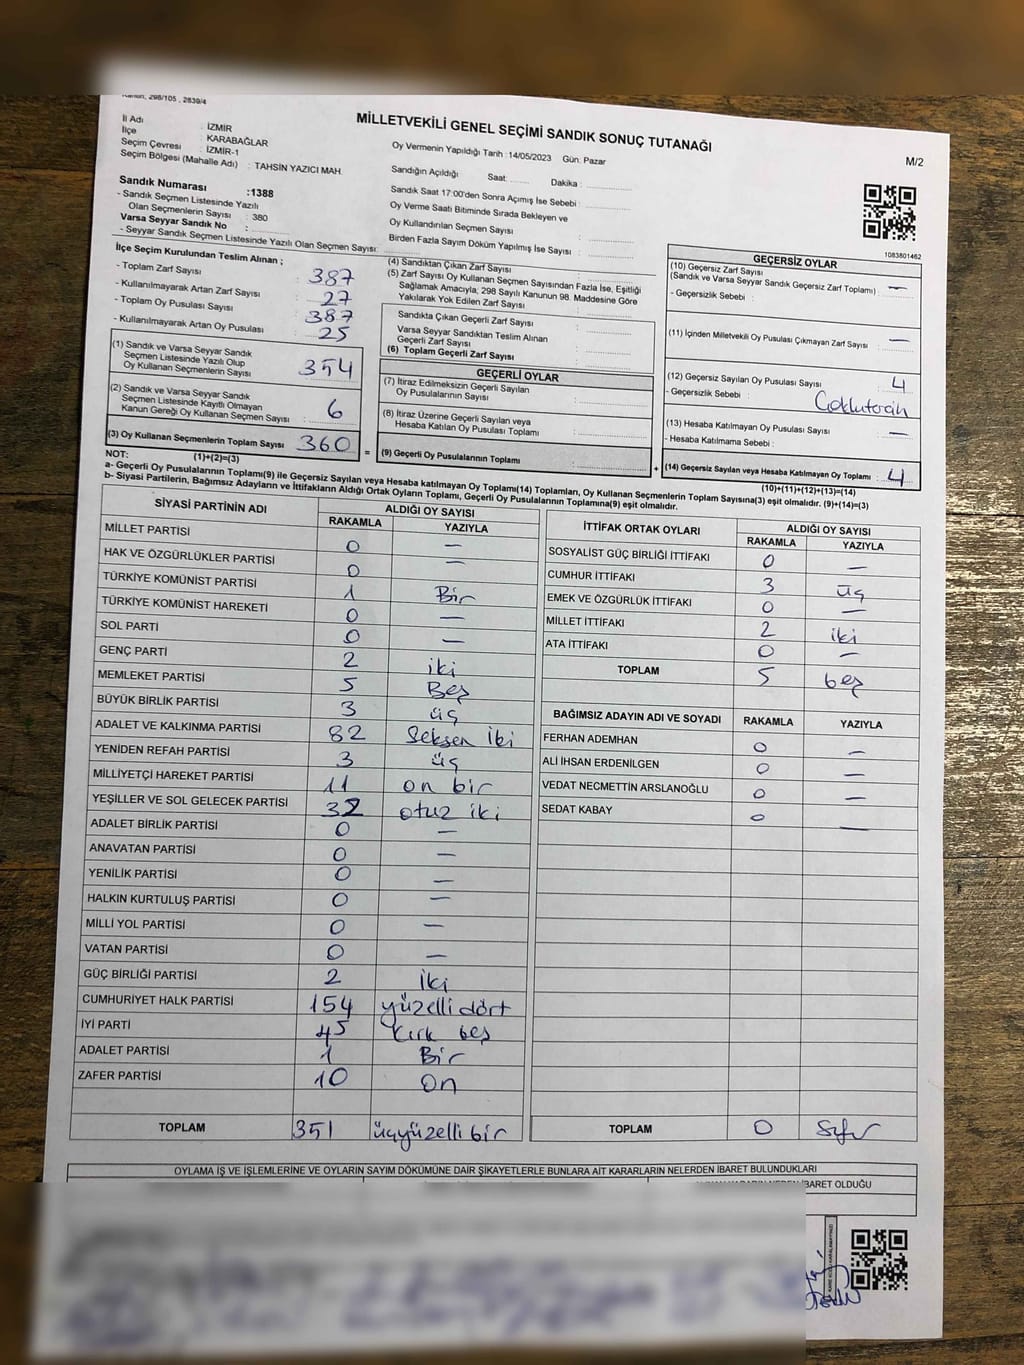 Kanun, 298/105 , 2839/4
MİLLETVEKİLİ GENEL SEÇİMİ SANDIK SONUÇ TUTANAĞI
M/2
İl Adı : İZMİR
İlçe : KARABAĞLAR
Seçim Çevresi : İZMİR-1
Seçim Bölgesi (Mahalle Adı) : TAHSİN YAZICI MAH.
Sandık Numarası :1388
- Sandık Seçmen Listesinde Yazılı
Olan Seçmenlerin Sayısı : 380
Varsa Seyyar Sandık No :
- Seyyar Sandık Seçmen Listesinde Yazılı Olan Seçmen Sayısı:
Oy Vermenin Yapıldığı Tarih :14/05/2023 Gün: Pazar
Sandığın Açıldığı Saat: Dakika :
Sandık Saat 17:00'den Sonra Açımış İse Sebebi :
Oy Verme Saati Bitiminde Sırada Bekleyen ve
Oy Kullandırılan Seçmen Sayısı :
Birden Fazla Sayım Döküm Yapılmış İse Sayısı :
1083801462
İlçe Seçim Kurulundan Teslim Alınan ;
- Toplam Zarf Sayısı : 387
- Kullanılmayarak Artan Zarf Sayısı : 27
- Toplam Oy Pusulası Sayısı : 387
- Kullanılmayarak Artan Oy Pusulası : 25
(1) Sandık ve Varsa Seyyar Sandık
Seçmen Listesinde Yazılı Olup
Oy Kullanan Seçmenlerin Sayısı : 354
(2) Sandık ve Varsa Seyyar Sandık
Seçmen Listesinde Kayıtlı Olmayan
Kanun Gereği Oy Kullanan Seçmen Sayısı : 6
(3) Oy Kullanan Seçmenlerin Toplam Sayısı : 360
(1)+(2)=(3)
(4) Sandıktan Çıkan Zarf Sayısı :
(5) Zarf Sayısı Oy Kullanan Seçmen Sayısından Fazla İse, Eşitliği
Sağlamak Amacıyla; 298 Sayılı Kanunun 98. Maddesine Göre
Yakılarak Yok Edilen Zarf Sayısı :
Sandıkta Çıkan Geçerli Zarf Sayısı :
Varsa Seyyar Sandıktan Teslim Alınan
Geçerli Zarf Sayısı :
(6) Toplam Geçerli Zarf Sayısı :
GEÇERLİ OYLAR
(7) İtiraz Edilmeksizin Geçerli Sayılan
Oy Pusulalarının Sayısı :
(8) İtiraz Üzerine Geçerli Sayılan veya
Hesaba Katılan Oy Pusulası Toplamı :
= (9) Geçerli Oy Pusulalarının Toplamı : +
GEÇERSİZ OYLAR
(10) Geçersiz Zarf Sayısı
(Sandık ve Varsa Seyyar Sandık Geçersiz Zarf Toplamı) : —
- Geçersizlik Sebebi :
(11) İçinden Milletvekili Oy Pusulası Çıkmayan Zarf Sayısı : —
(12) Geçersiz Sayılan Oy Pusulası Sayısı : 4
- Geçersizlik Sebebi :
(13) Hesaba Katılmayan Oy Pusulası Sayısı : —
- Hesaba Katılmama Sebebi :
(14) Geçersiz Sayılan veya Hesaba Katılmayan Oy Toplamı : 4
(10)+(11)+(12)+(13)=(14)
NOT:
a- Geçerli Oy Pusulalarının Toplamı(9) ile Geçersiz Sayılan veya Hesaba katılmayan Oy Toplamı(14) Toplamları, Oy Kullanan Seçmenlerin Toplam Sayısına(3) eşit olmalıdır. (9)+(14)=(3)
b- Siyasi Partilerin, Bağımsız Adayların ve İttifakların Aldığı Ortak Oyların Toplamı, Geçerli Oy Pusulalarının Toplamına(9) eşit olmalıdır.
SİYASİ PARTİNİN ADI ALDIĞI OY SAYISI
RAKAMLA YAZIYLA
MİLLET PARTİSİ 0 —
HAK VE ÖZGÜRLÜKLER PARTİSİ 0 —
TÜRKİYE KOMÜNİST PARTİSİ 1 Bir
TÜRKİYE KOMÜNİST HAREKETİ 0 —
SOL PARTİ 0 —
GENÇ PARTİ 2 iki
MEMLEKET PARTİSİ 5 Beş
BÜYÜK BİRLİK PARTİSİ 3 üç
ADALET VE KALKINMA PARTİSİ 82 Seksen İki
YENİDEN REFAH PARTİSİ 3 üç
MİLLİYETÇİ HAREKET PARTİSİ 11 on bir
YEŞİLLER VE SOL GELECEK PARTİSİ 32 otuz iki
ADALET BİRLİK PARTİSİ 0 —
ANAVATAN PARTİSİ 0 —
YENİLİK PARTİSİ 0 —
HALKIN KURTULUŞ PARTİSİ 0 —
MİLLİ YOL PARTİSİ 0 —
VATAN PARTİSİ 0 —
GÜÇ BİRLİĞİ PARTİSİ 2 İki
CUMHURİYET HALK PARTİSİ 154 yüzelli dört
İYİ PARTİ 45 Kırk beş
ADALET PARTİSİ 1 Bir
ZAFER PARTİSİ 10 On
TOPLAM 351 üçyüzelli bir
İTTİFAK ORTAK OYLARI ALDIĞI OY SAYISI
RAKAMLA YAZIYLA
SOSYALİST GÜÇ BİRLİĞİ İTTİFAKI 0 —
CUMHUR İTTİFAKI 3 üç
EMEK VE ÖZGÜRLÜK İTTİFAKI 0 —
MİLLET İTTİFAKI 2 iki
ATA İTTİFAKI 0 —
TOPLAM 5 beş
BAĞIMSIZ ADAYIN ADI VE SOYADI RAKAMLA YAZIYLA
FERHAN ADEMHAN 0 —
ALİ İHSAN ERDENİLGEN 0 —
VEDAT NECMETTİN ARSLANOĞLU 0 —
SEDAT KABAY 0 —
TOPLAM 0 Sıfır
OYLAMA İŞ VE İŞLEMLERİNE VE OYLARIN SAYIM DÖKÜMÜNE DAİR ŞİKAYETLERLE BUNLARA AİT KARARLARIN NELERDEN İBARET BULUNDUKLARI
İBARET OLDUĞU